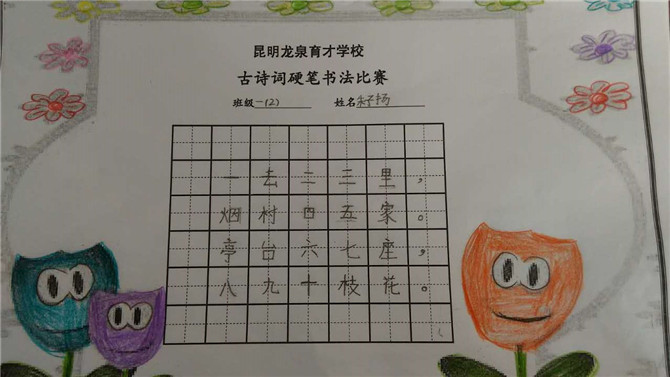 昆明龙泉育才学校
古诗词硬笔书法比赛
班级一(2) 姓名
一去二三里，
烟村四五家。
亭台六七座，
八九十枝花。